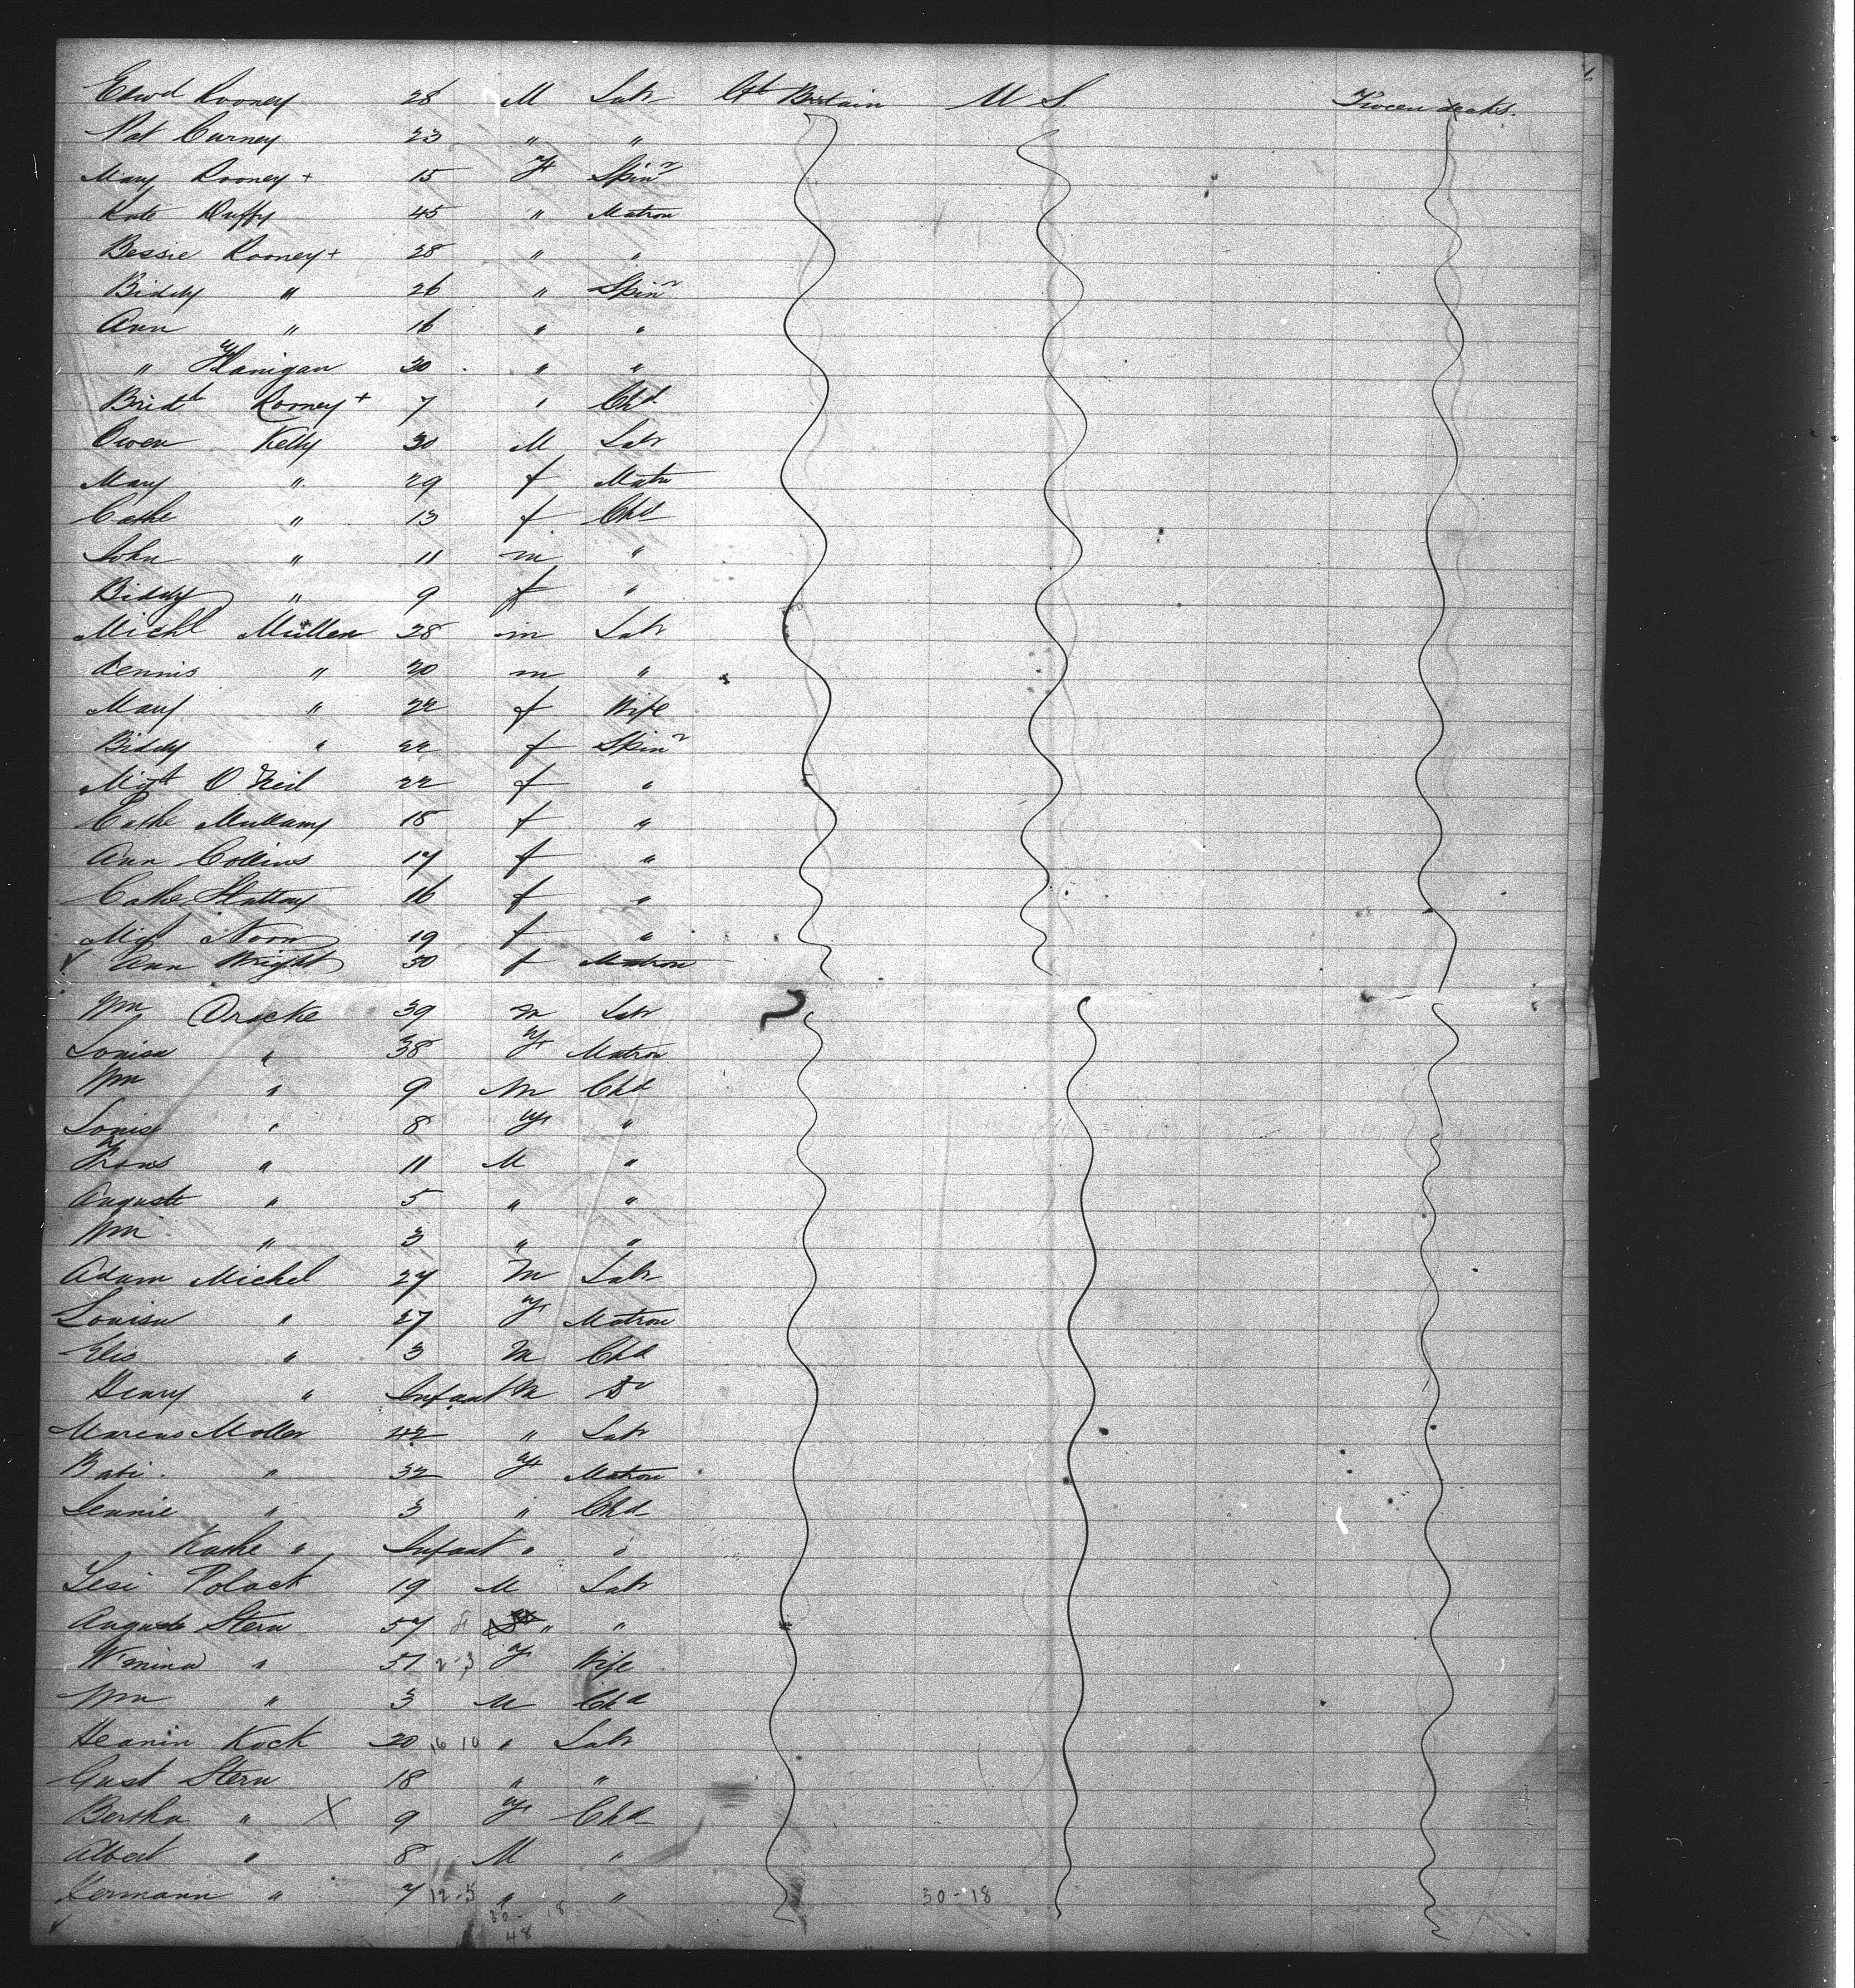 Edwd Rooney 28 M Labr Gt Britain U S Tween decks.
Pat Curney 23 " "
Mary Rooney + 15 F Spinr
Kate Duffy 45 " Matron
Bessie Rooney + 28 " "
Biddy " 26 " Spinr
Ann " 16 " "
" Flanigan 30 " "
Bridt Rooney + 7 " Chd
Owen Kelly 30 M Labr
Mary " 29 f Matn
Cathe " 13 f Chd
John " 11 m "
Biddy " 9 f "
Michl Mullen 28 m Labr
Dennis " 20 m "
Mary " 22 f Wife
Biddy " 22 f Spinr
Mgt O'Neil 22 f "
Cathe Mullany 18 f "
Ann Collins 17 f "
Cathe Slattery 16 f "
Mgt Noon 19 f "
Ann Wright 50 f Matron
Wm Dracke 39 m Labr
Louisa " 38 F Matron
Wm " 9 M Chd
Louise " 8 F "
Frans " 11 M "
Auguste " 5 " "
Wm " 3 " "
Adam Michel 27 M Labr
Louisa " 27 F Matron
Elis " 3 M Chd
Henry " Infant M Do
Marcus Moller 42 " Labr
Babi " 32 F Matron
Jennie " 3 " Chd
Kathe " Infant " "
Lesi Polack 19 M Labr
Auguste Stern 57 " "
W'mina " 51 2-3 F Wife
Wm " 3 M Chd
Heanin Kock 20 16 10 " Labr
Gust Stern 18 " "
Bertha " X 9 F Chd
Albert " 8 M "
Hermann " 7 12-5 " " 30-18
30- 18
48